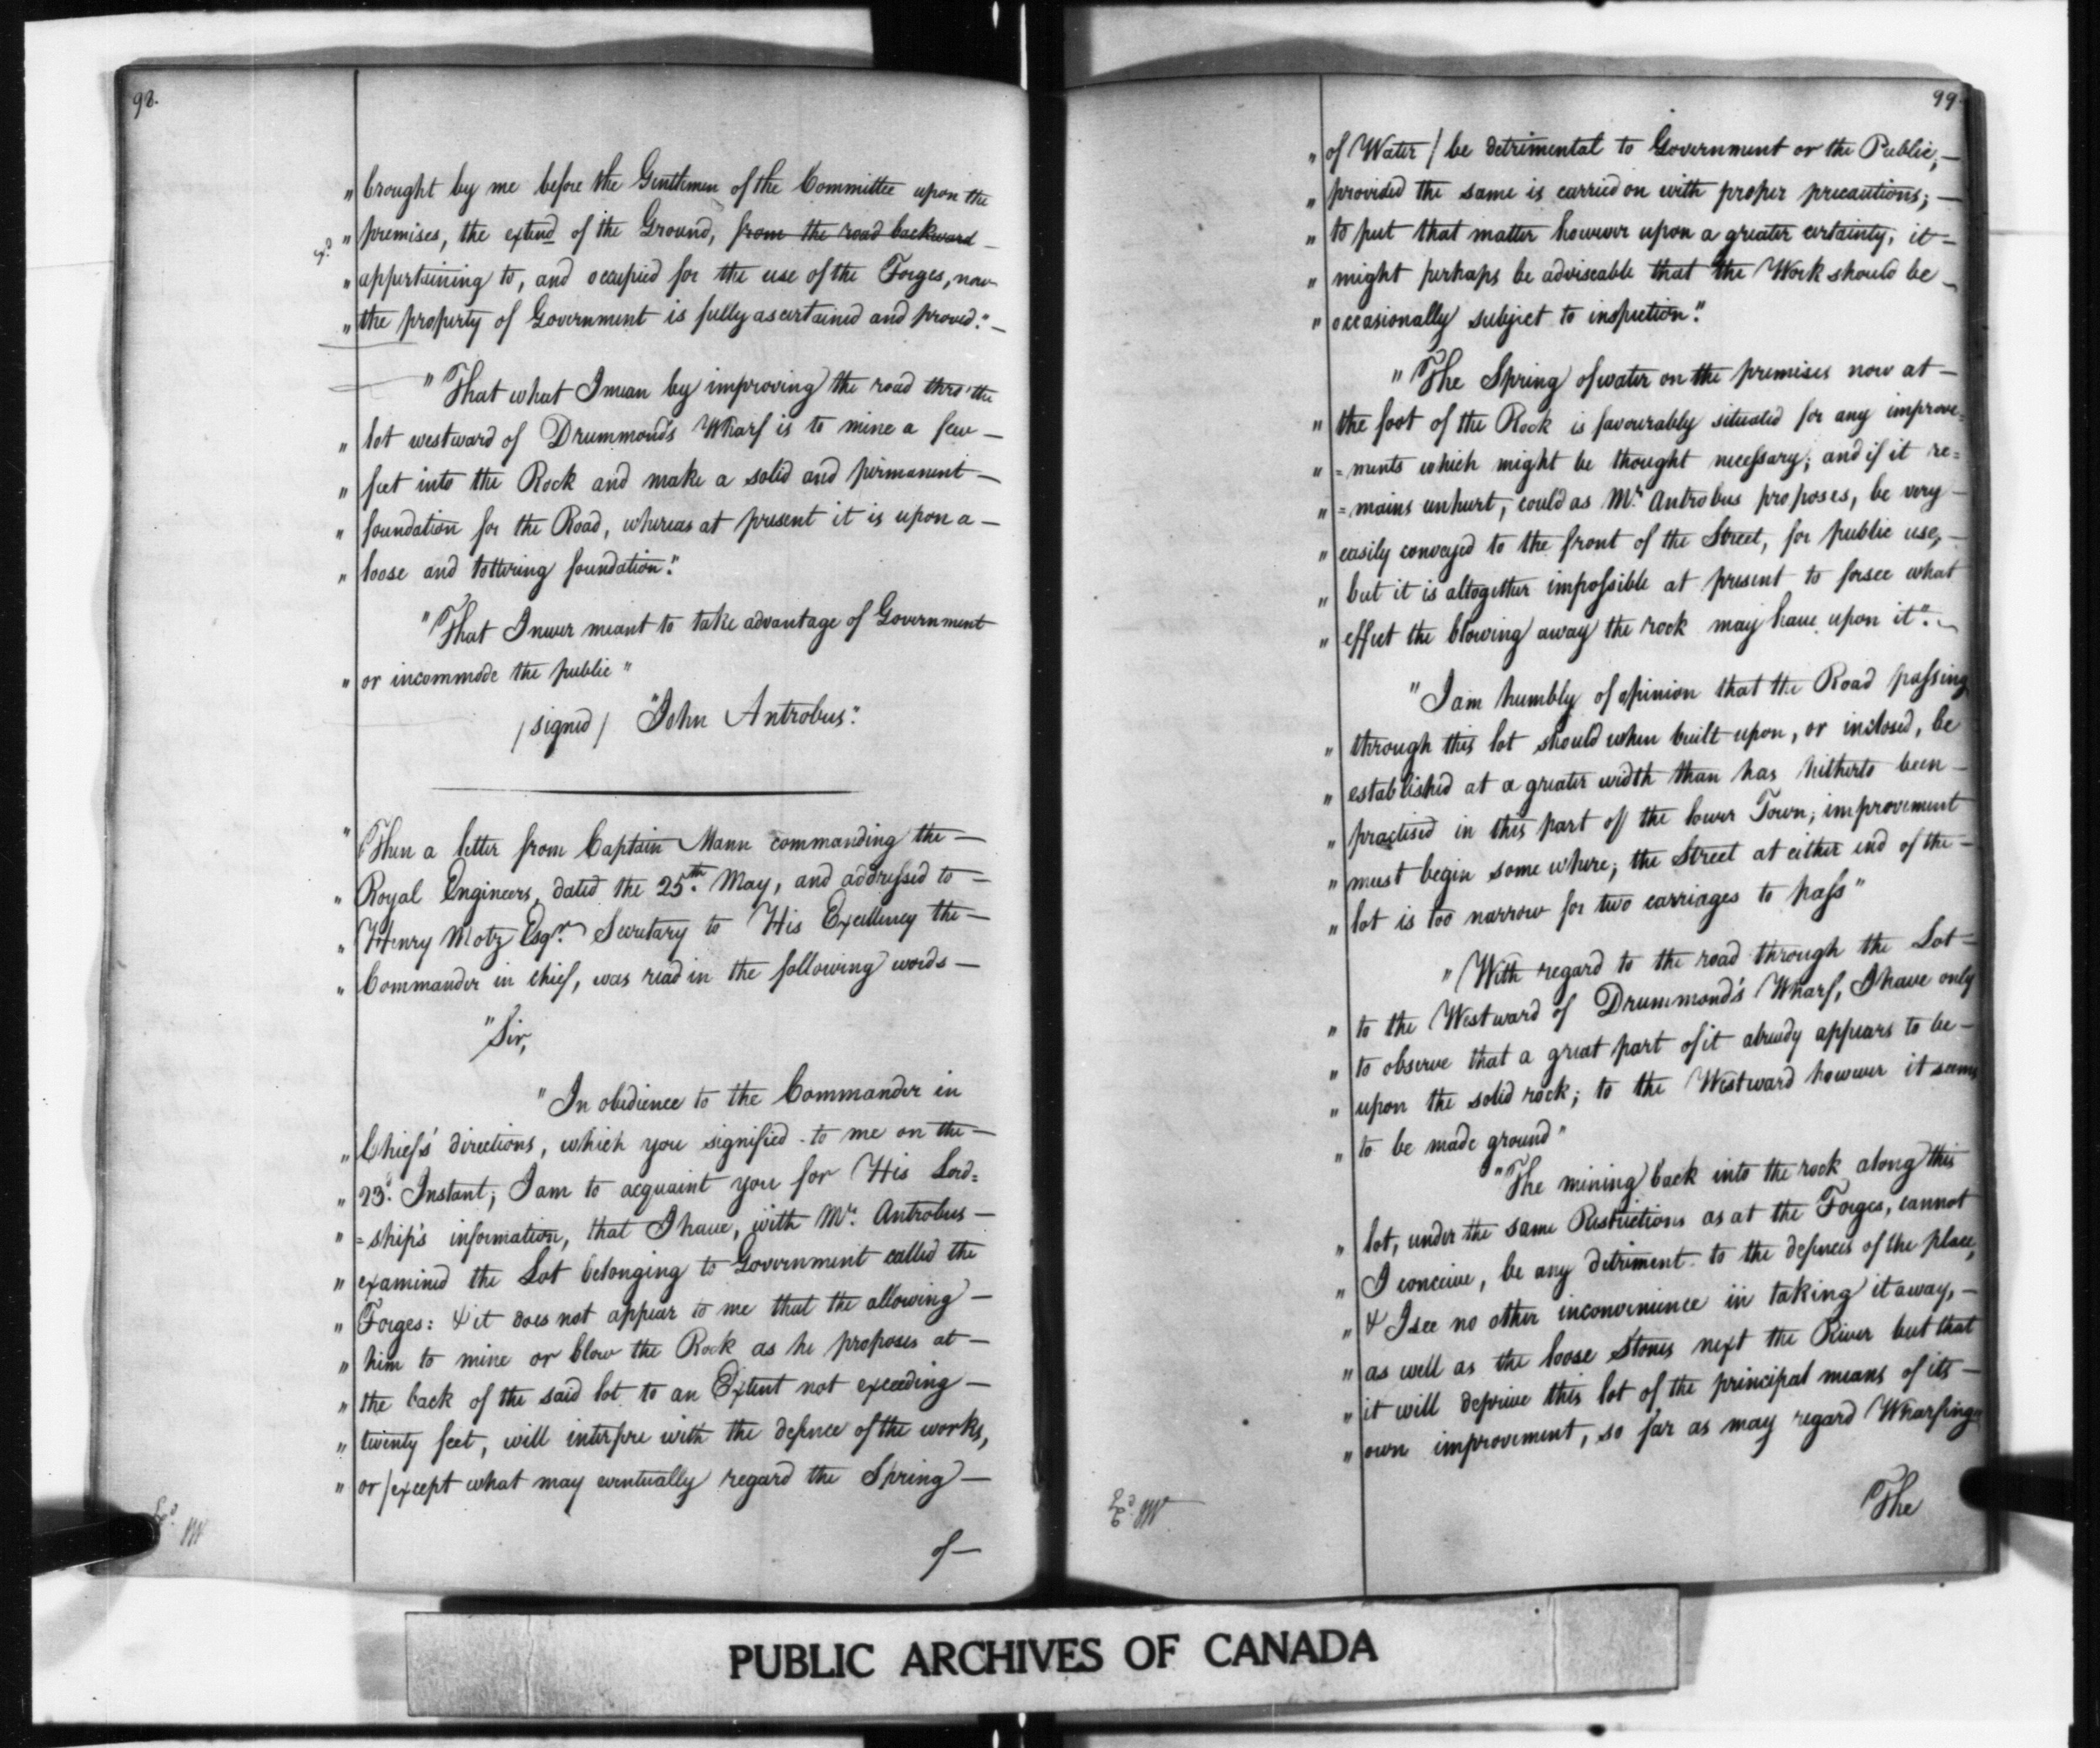 98.
" brought by me before the Gentlemen of the Committee upon the
" premises, the extend of the Ground, from the road backward —
" appertaining to, and occupied for the use of the Forges, now
" the property of Government is fully ascertained and proved." —
" That what I mean by improving the road thro' the
" lot westward of Drummond's Wharf is to mine a few —
" feet into the Rock and make a solid and permanent —
" foundation for the Road, whereas at present it is upon a —
" loose and tottering foundation."
" That I never meant to take advantage of Government
" or incommode the public "
/ signed / "John Antrobus."
" Then a letter from Captain Mann commanding the —
" Royal Engineers, dated the 25th. May, and addressed to —
" Henry Motz Esqr. Secretary to His Excellency the —
" Commander in chief, was read in the following words —
"Sir,
" In obedience to the Commander in
" Chief's directions, which you signified to me on the —
" 23d. Instant; I am to acquaint you for His Lord=
" =ship's information, that I have, with Mr. Antrobus —
" examined the Lot belonging to Government called the
" Forges: & it does not appear to me that the allowing —
" him to mine or blow the Rock as he proposes at —
" the back of the said lot to an Extent not exceeding —
" twenty feet, will interfere with the defence of the works,
" or / except what may eventually regard the Spring —
of —
99.
" of Water / be detrimental to Government or the Public, —
" provided the same is carried on with proper precautions; —
" to put that matter however upon a greater certainty, it —
" might perhaps be adviseable that the Work should be —
" occasionally subject to inspection."
" The Spring of water on the premises now at —
" the foot of the Rock is favourably situated for any improve=
" =ments which might be thought necessary; and if it re=
" =mains unhurt, could as Mr. Antrobus proposes, be very —
" easily conveyed to the front of the Street, for public use, —
" but it is altogether impossible at present to forsee what
" effect the blowing away the rock may have upon it."
" I am humbly of opinion that the Road passing
" through this lot should when built upon, or inclosed, be
" established at a greater width than has hitherto been —
" practised in this part of the lower Town; improvement
" must begin some where; the Street at either end of the —
" lot is too narrow for two carriages to pass"
" With regard to the road through the Lot —
" to the Westward of Drummond's Wharf, I have only
" to observe that a great part of it already appears to be —
" upon the solid rock; to the Westward however it seems
" to be made ground"
" The mining back into the rock along this
" lot, under the same Restrictions as at the Forges, cannot
" I conceive, be any detriment to the defences of the place,
" & I see no other inconvenience in taking it away, —
" as well as the loose Stones next the River but that
" it will deprive this lot of the principal means of its —
" own improvement, so far as may regard Wharfing"
The
PUBLIC ARCHIVES OF CANADA